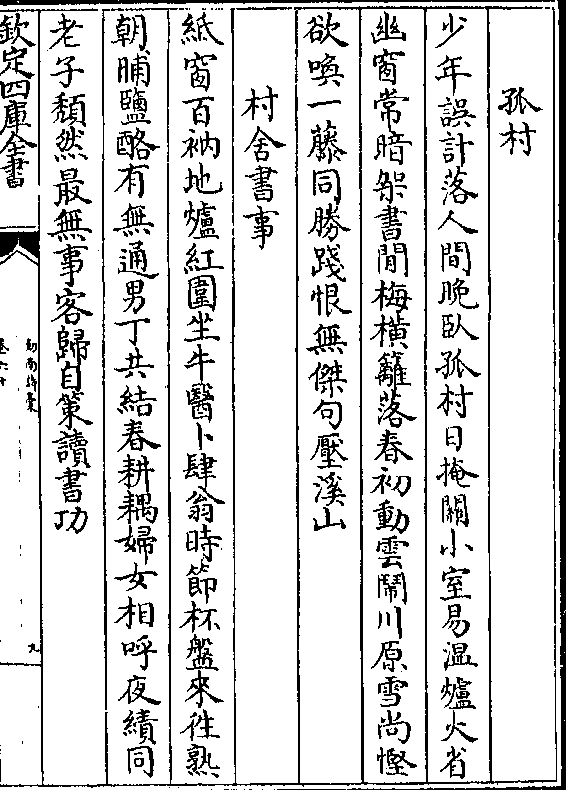 孤村
少年誤計落人間晚臥孤村日掩關小室易温爐火省
幽窗常暗架書閒梅橫籬落春初動雲鬧川原雪尚慳
欲喚一藤同勝踐恨無傑句壓溪山
村舍書事
紙窗百衲地爐紅圍坐牛醫卜肆翁時節杯盤來往熟
朝晡鹽酪有無通男丁共結春耕耦婦女相呼夜績同
老子頽然最無事客歸自策讀書功
欽定四庫全書
劍南詩藁
卷六十
九